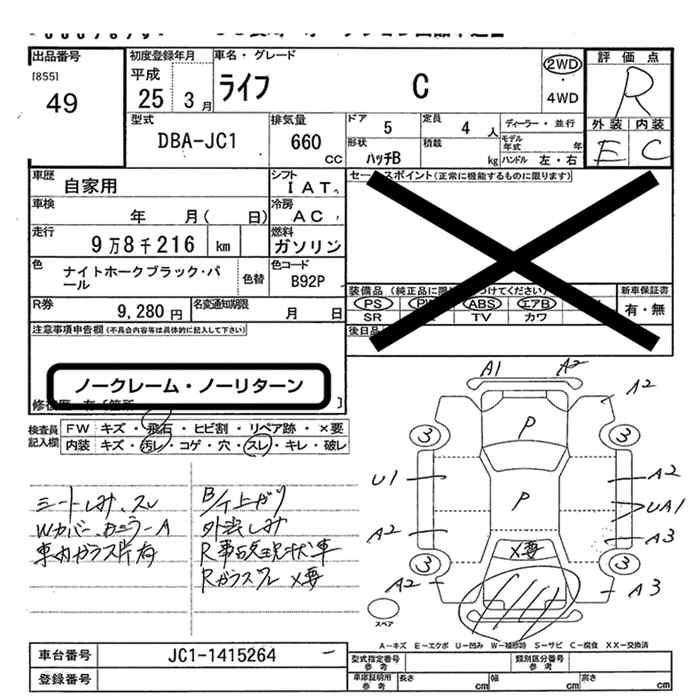 出品番号
[855]
49
初度登録年月
平成
25 3月
車名・グレード
ライフ C
2WD
・
4WD
評価点
R
外装 内装
E C
型式
DBA-JC1
排気量
660
cc
ドア
5
定員
4人
ディーラー・並行
形状
ハッチB
積載
kg
モデル年式 年
ハンドル 左・右
車歴
自家用
シフト
IAT
セールスポイント(正常に機能するものに限ります)
車検
年 月( 日)
冷房
AC
走行
9万8千216 km
燃料
ガソリン
色
ナイトホークブラック・パール
色替
色コード
B92P
装備品
PS ABS エアB
SR TV カワ
新車保証書
有・無
R券
9,280円
名変通知期限
月 日
注意事項申告欄(不具合内容等は具体的に記入して下さい)
後日品
ノークレーム・ノーリターン
検査員
記入欄
FW キズ・飛石・ヒビ割・リペア跡・×要
内装 キズ・汚レ・コゲ・穴・スレ・キレ・破レ
シートしみ、スレ
車内ガラス片有
B/T上がり
R事故現状車
Rガラスワレ X要
A1 A2
A2
3 3
P
U1
A2
P
UA1
A2
A3
X要
3 3
A2
A3
スペア
A−キズ E−エクボ U−凹み W−補修跡 S−サビ C−腐食 XX−交換済
車台番号
JC1-1415264
登録番号
型式指定番号
参考
類別区分番号
参考
車庫証明用
参考
長さ cm
幅 cm
高さ cm